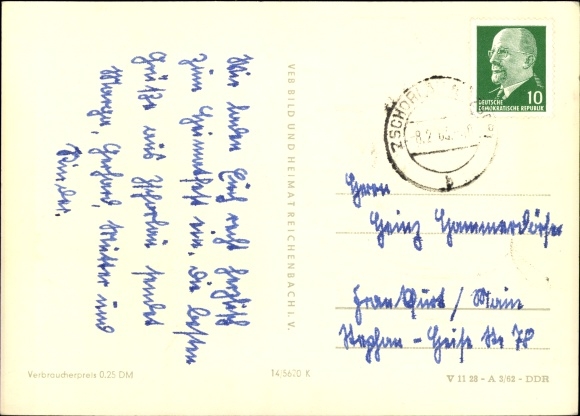 Wir laden Euch recht herzlich
zum Heimatfest ein. Die besten
Grüße aus Zschorlau sendet
Marga, Gerhard, Mutter und
Kinder.
VEB BILD UND HEIMAT REICHENBACH I. V.
DEUTSCHE
DEMOKRATISCHE REPUBLIK
10
ZSCHORLAU
8.2.63
b
Herrn
Heinz Hammerdörfer
Frankfurt / Main
Stephan - Heise Str 78
Verbraucherpreis 0,25 DM
14/5620 K
V 11 28 - A 3/62 - DDR